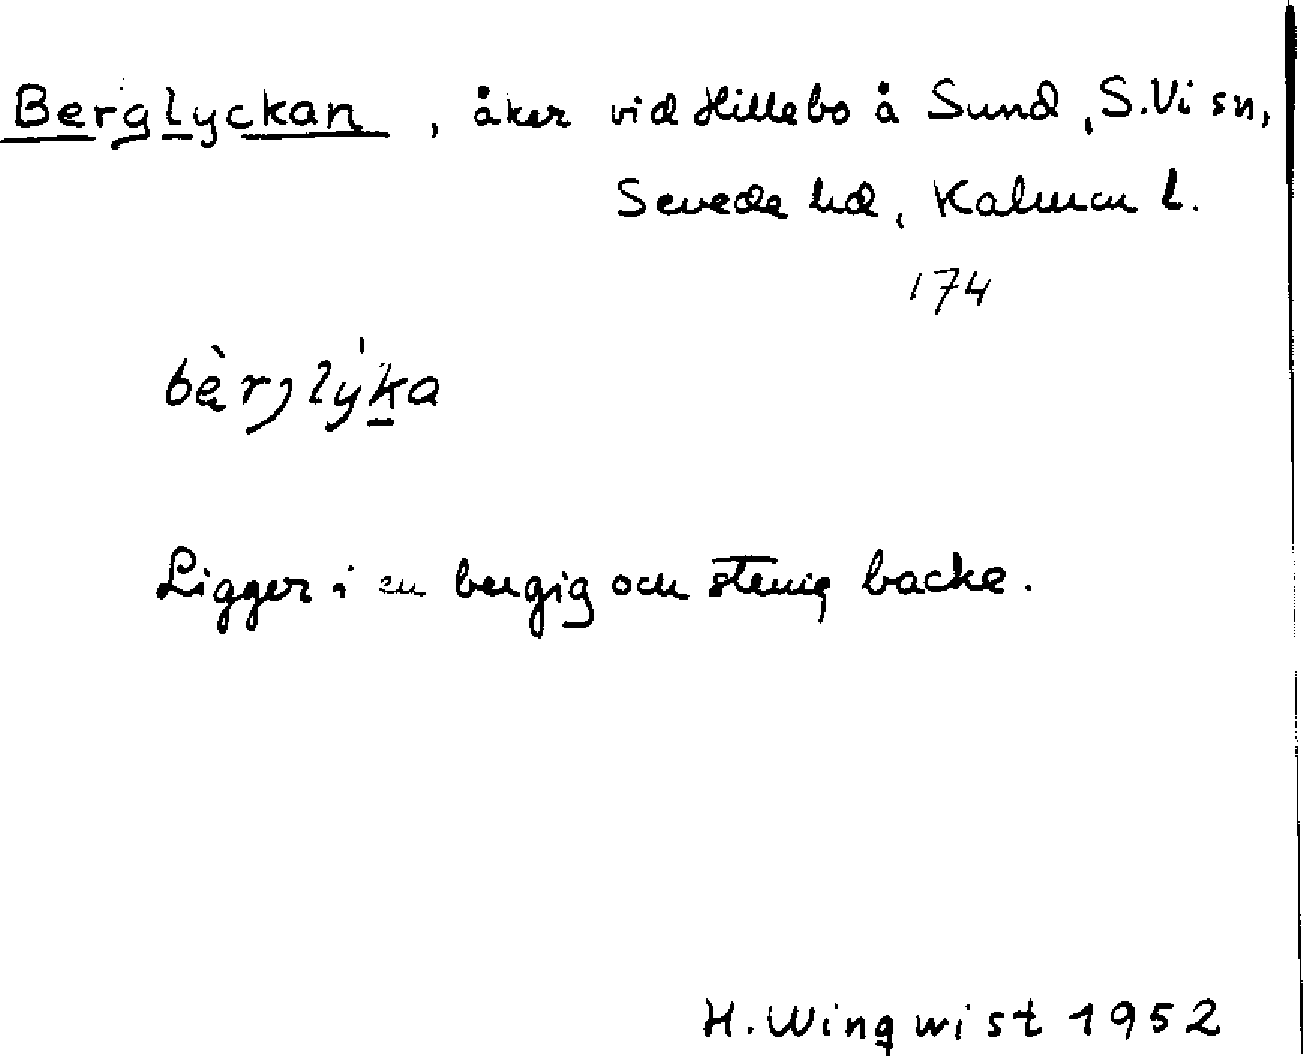 Berglyckan, åker vid Hillebo å Sund, S. Vi sn,
Sevede hd, Kalmar l.
174
bæ̀rjlýka
Ligger i en bergig och stenig backe.
H. Wingwist 1952